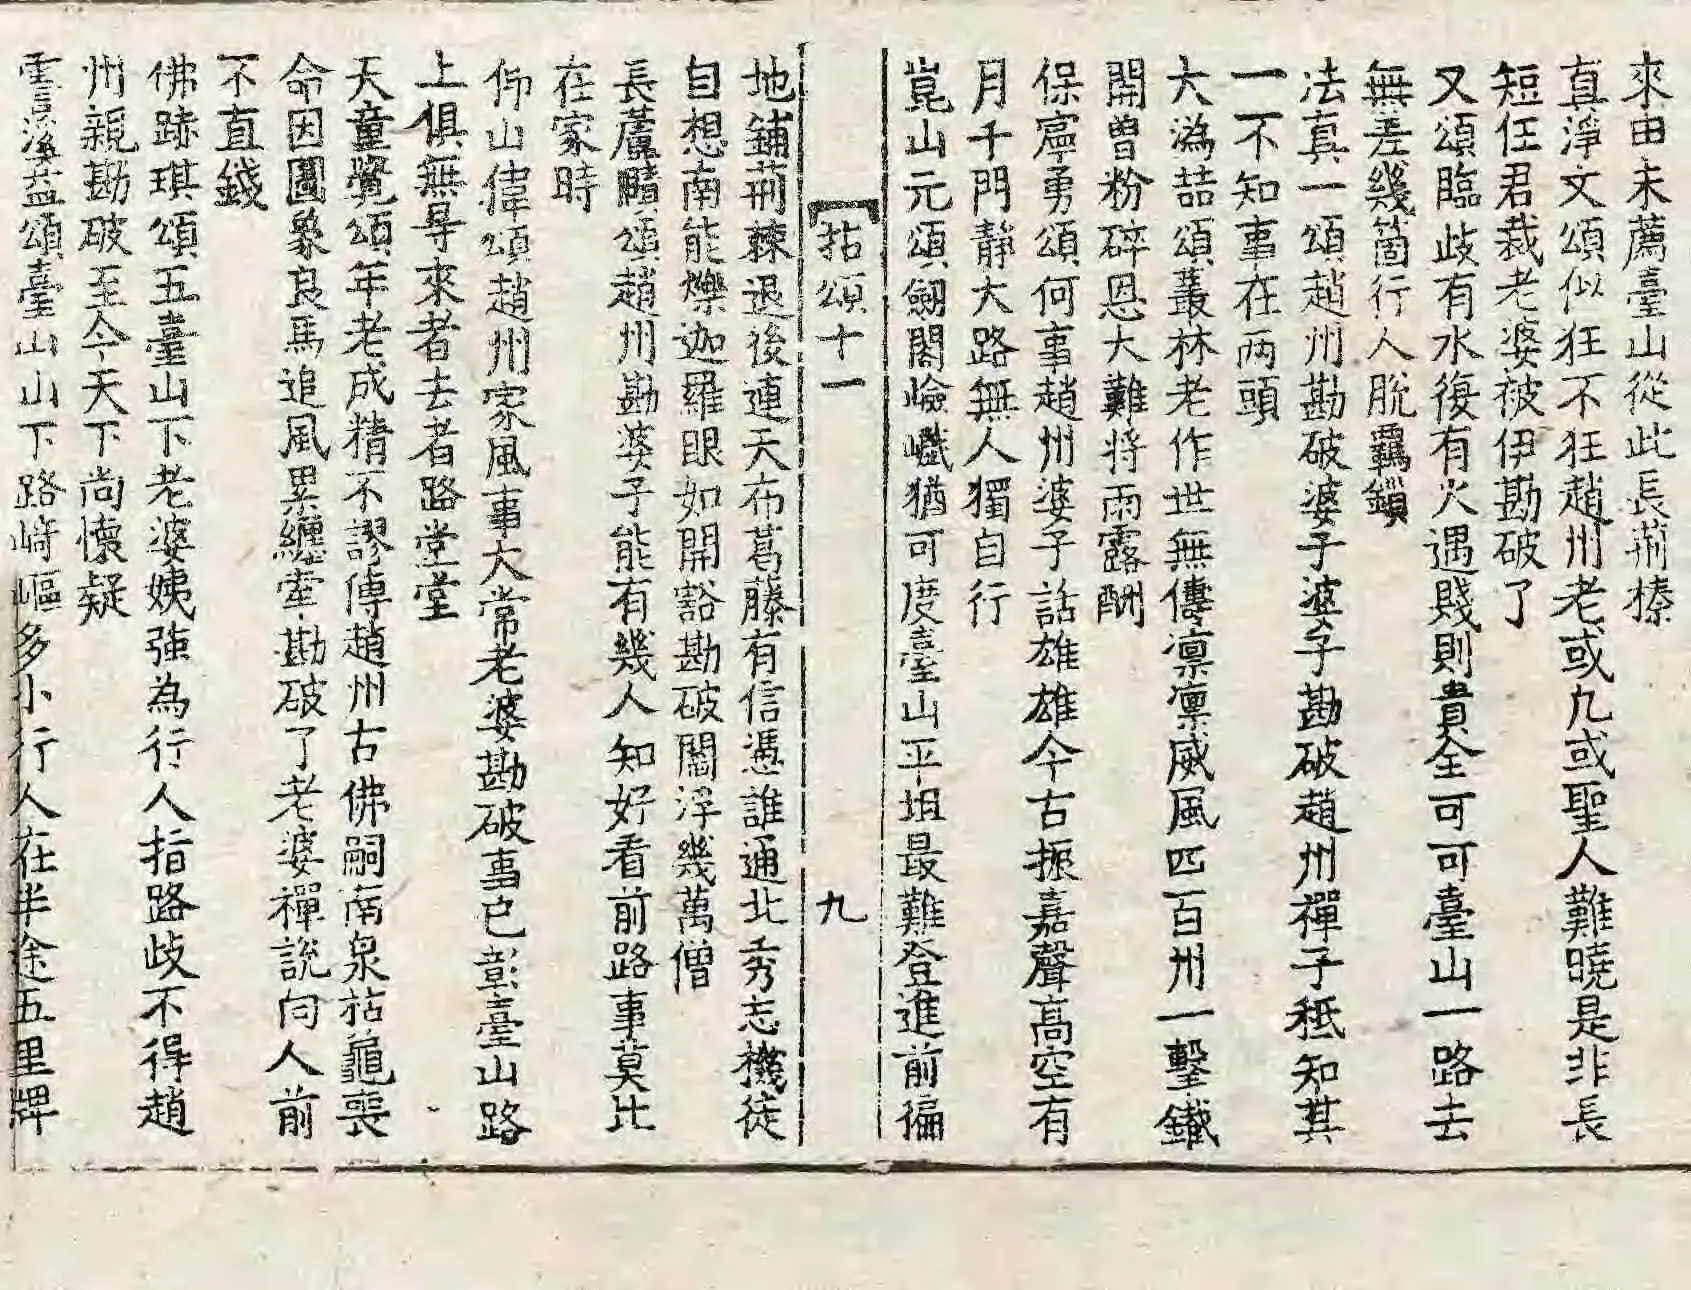 來由未薦臺山從此長荊榛
真淨文頌似狂不狂趙州老或凡或聖人難曉是非長
短任君裁老婆被伊勘破了
又頌臨歧有水復有火遇賤則貴全可可臺山一路去
無差幾箇行人脫羈鎖
法真一頌趙州勘破婆子婆子勘破趙州禪子秪知其
一不知事在兩頭
大溈喆頌叢林老作世無儔凛凛威風四百州一擊鐵
開曾粉碎恩大難將雨露酬
保寧勇頌何事趙州婆子話雄雄今古振嘉聲高空有
月千門靜大路無人獨自行
崑山元頌劒閣嶮巇猶可度臺山平坦最難登進前徧
拈頌十一 九
地鋪荊棘退後連天布葛藤有信憑誰通北秀志機徒
自想南能爍迦羅眼如開豁勘破閻浮幾萬僧
長蘆賾頌趙州勘婆子能有幾人知好看前路事莫比
在家時
仰山偉頌趙州家風事大常老婆勘破事已彰臺山路
上俱無㝵來者去者路堂堂
天童覺頌年老成精不謬傳趙州古佛嗣南泉枯龜喪
命因圖象良馬追風累纏牽勘破了老婆禪說向人前
不直錢
佛跡琪頌五臺山下老婆姨強為行人指路歧不得趙
州親勘破至今天下尚懷疑
雲溪益頌臺山山下路崎嶇多小行人在半途五里牌